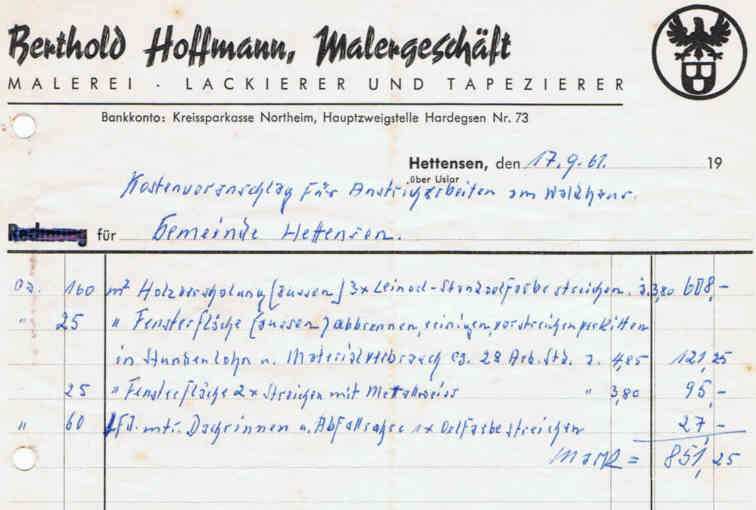 Berthold Hoffmann, Malergeschäft
MALEREI - LACKIERER UND TAPEZIERER
Bankkonto: Kreissparkasse Northeim, Hauptzweigstelle Hardegsen Nr. 73
Hettensen, den 17.9.61. 19
über Uslar
Kostenvoranschlag für Anstricharbeiten am Waldhaus.
Rechnung für Gemeinde Hettensen.
ca. 160 m² Holzverschalung (aussen) 3x Leinoel-Standoelfarbe streichen. à 3,80 608,-
" 25 " Fensterfläche (aussen) abbrennen, reinigen, vorstreichen verkitten
in Stundenlohn u. Materialverbrauch ca. 28 Arb. Std. a. 4,85 121,25
25 " Fensterfläche 2x Streichen mit Metallweiss " 3,80 95,-
" 60 lfd. mtr. Dachrinnen u. Abfallrohre 1x Oelfarbe streichen 27,-
Mark = 851,25